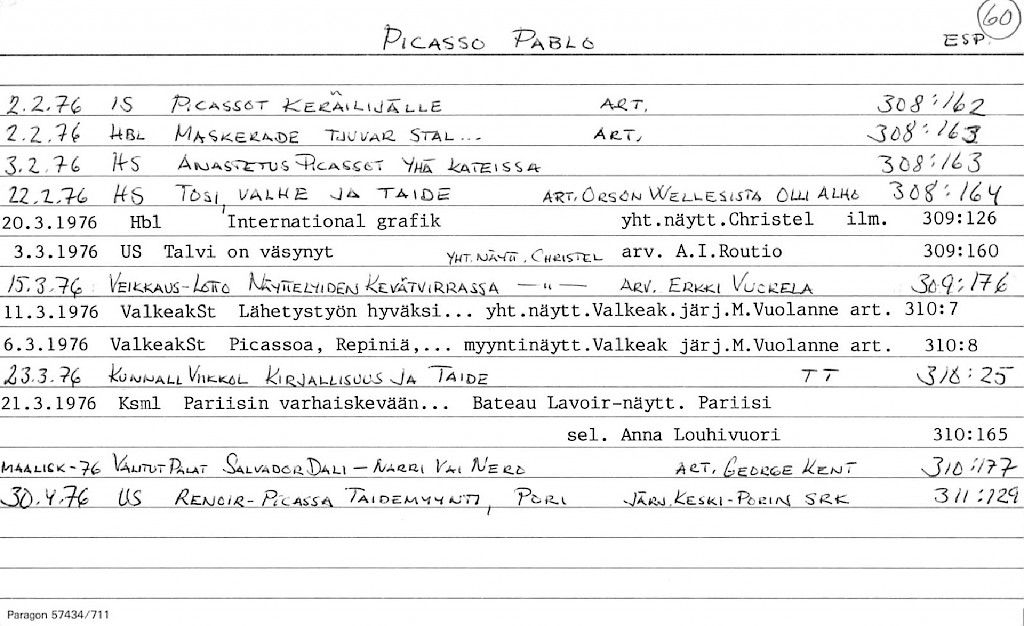 60
PICASSO PABLO ESP.
2.2.76 IS PICASSOT KERÄILIJÄLLE ART. 308:162
2.2.76 HBL MASKERADE TJUVAR STAL... ART. 308:163
3.2.76 HS ANASTETUS PICASSOT YHÄ KATEISSA 308:163
22.2.76 HS TOSI, VALHE JA TAIDE ART. ORSON WELLESISTA OLLI ALHO 308:164
20.3.1976 Hbl International grafik yht.näytt.Christel ilm. 309:126
3.3.1976 US Talvi on väsynyt YHT. NÄYTT. CHRISTEL arv. A.I.Routio 309:160
15.3.76 VEIKKAUS-LOTTO NÄYTTELYIDEN KEVÄTVIRRASSA —"— ARV. ERKKI VUOKELA 309:176
11.3.1976 ValkeakSt Lähetystyön hyväksi... yht.näytt.Valkeak.järj.M.Vuolanne art. 310:7
6.3.1976 ValkeakSt Picassoa, Repiniä,... myyntinäytt.Valkeak järj.M.Vuolanne art. 310:8
23.3.76 KUNNALL VIIKKOL KIRJALLISUUS JA TAIDE TT 310:25
21.3.1976 Ksml Pariisin varhaiskevään... Bateau Lavoir-näytt. Pariisi
sel. Anna Louhivuori 310:165
MAALISK-76 VALITUT PALAT SALVADOR DALI – NARRI VAI NERO ART. GEORGE KENT 310:177
30.4.76 US RENOIR-PICASSA TAIDEMYYNTI, PORI JÄRJ. KESKI-PORIN SRK 311:129
Paragon 57434/711